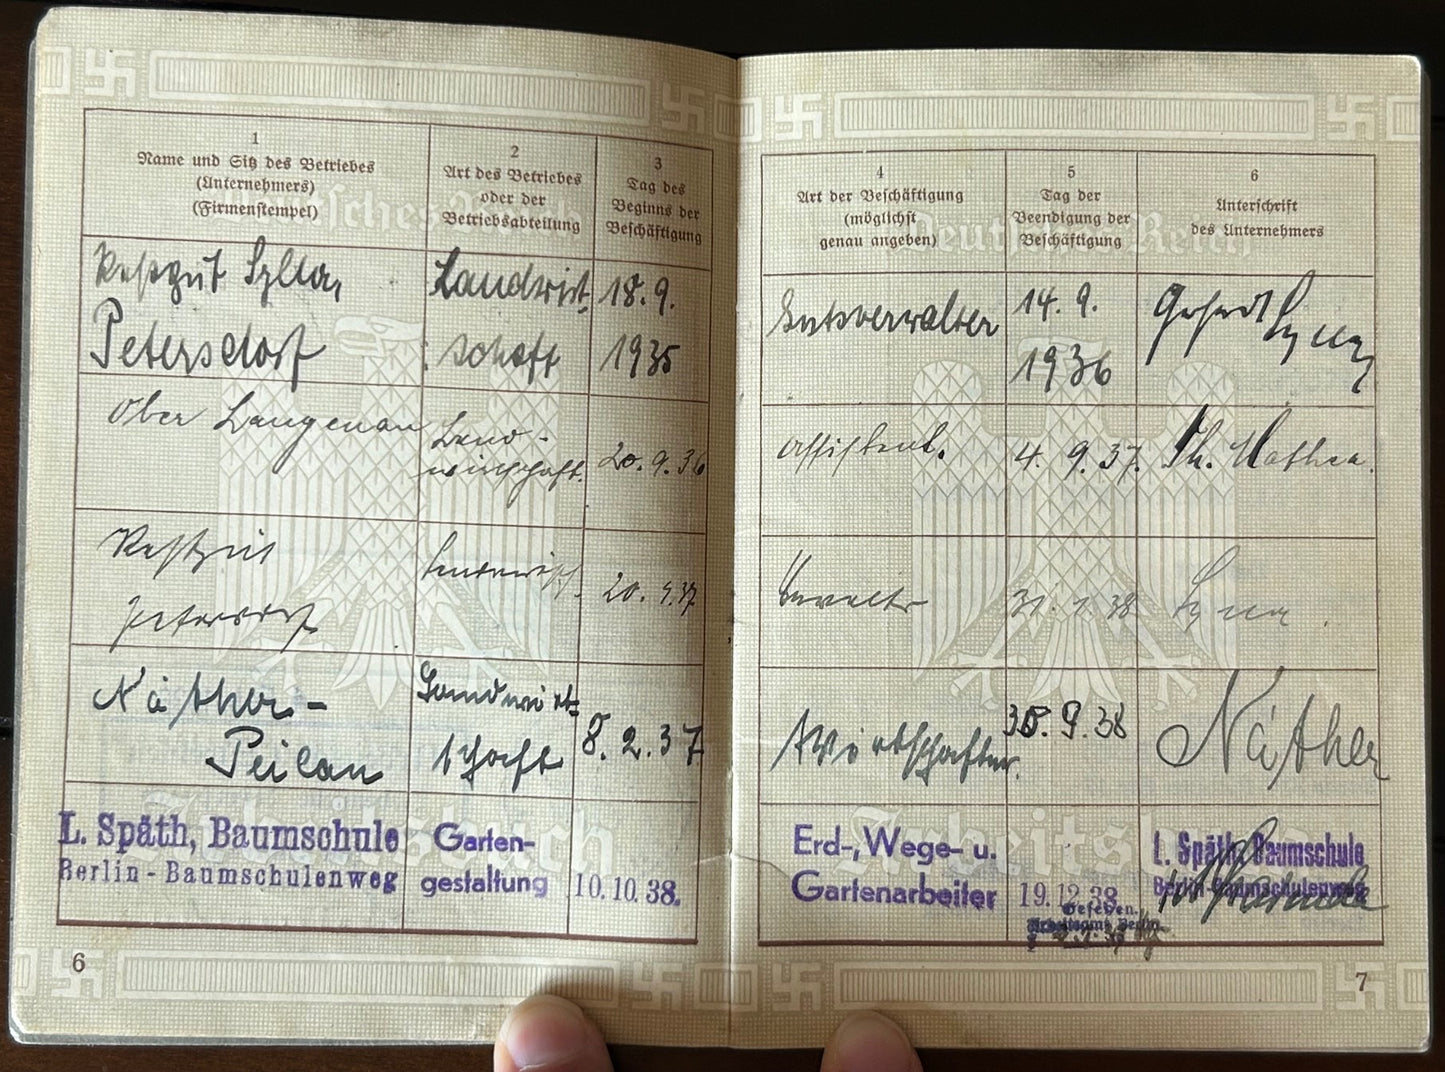 1
Name und Sitz des Betriebes
(Unternehmers)
(Firmenstempel)
2
Art des Betriebes
oder der
Betriebsabteilung
3
Tag des
Beginns der
Beschäftigung
Restgut
Petersdorf
Landwirt
schaft
18.9.
1935
Ober Langenau
Land-
wirtschaft.
20.9.36
Restgut
Petersdorf
Näther-
Peilau
Landwirt=
schaft
8.2.37
L. Späth, Baumschule
Berlin-Baumschulenweg
Garten-
gestaltung
10.10.38.
6
4
Art der Beschäftigung
(möglichst
genau angeben)
5
Tag der
Beendigung der
Beschäftigung
6
Unterschrift
des Unternehmers
Gutsverwalter
14.9.
1936
Assistent.
4.9.37.
Wirtschafter.
9.38
Näther
Erd-, Wege- u.
Gartenarbeiter
19.12.38.
Gesehen.
Arbeitsamt Berlin
L. Späth, Baumschule
Berlin-Baumschulenweg
7
Deutsches Reich
Arbeitsbuch